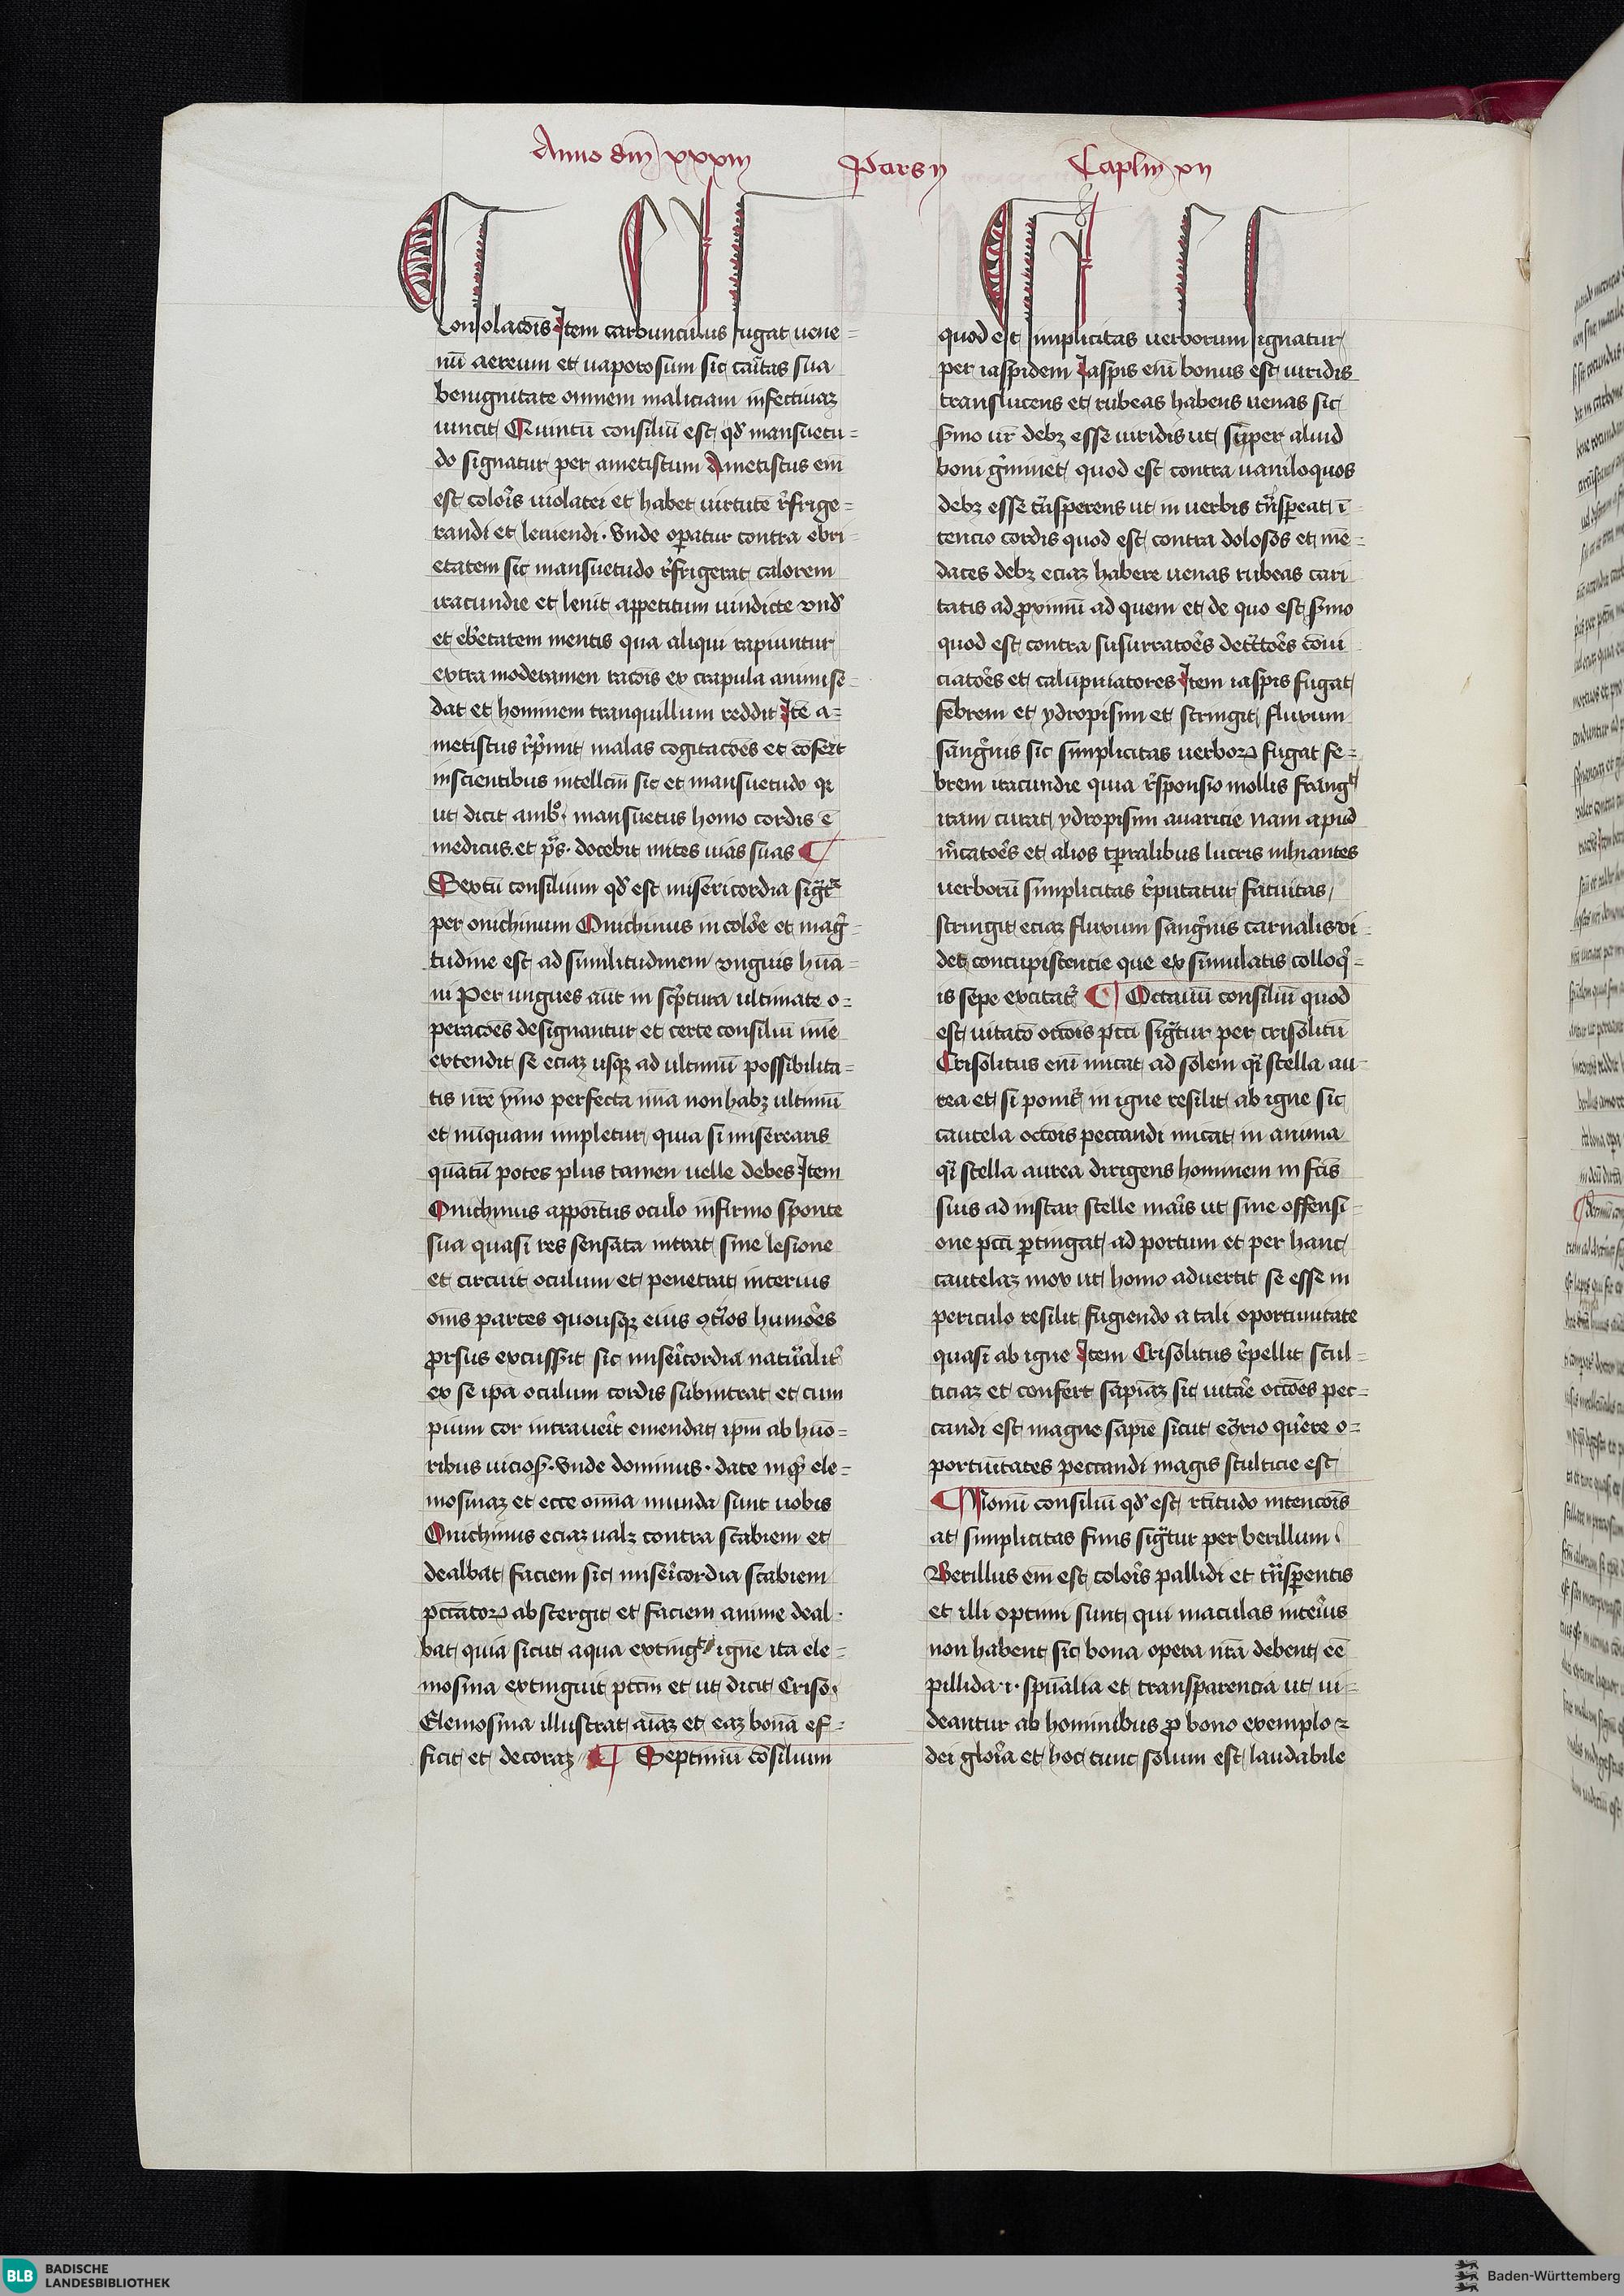 Anno dm̄ xxxiii Pars ii Caplm̄ xii
Consolacōis Item carbunculus fugat uene=
nū aereum et uaporosum sic cāitas sua
benignitate omnem maliciam infectiuaꝫ
uincit Quintū consiliū est qd' mansuetu=
do signatur per ametistum Ametistus em̄
est coloris uiolatei et habet uirtutē r̄frige=
randi et leniendi. Vnde opatur contra ebri
etatem sic mansuetudo r̄frigerat calorem
iracundie et lenit appetitum uindicte vnd'
et eb'etatem mentis qua aliqui rapiuntur
extra moderamen racōis ex crapula animi se=
dat et hominem tranquillum reddit Itē a=
metistus r̄p'mit malas cogitacōes et cōfert
inscientibus intellcm̄ sic et mansuetudo qꝛ
ut dicit amb'. mansuetus homo cordis ē
medicus. et p̄s. docebit mites uias suas
Sextū consilium qd' est misericordia sigr̄
per onichinum Onichinus in colōe et maḡ=
tudine est ad similitudinem vnguis hūa=
ni Per ungues aūt in scp̄tura ultimate o=
peracōes designantur et certe consiliū mīe
extendit se eciaꝫ usqꝫ ad ultimū possibilita=
tis nr̄e ymo perfecta mīa non habꝫ ultimū
et nūquam impletur quia si miserearis
quātū potes plus tamen uelle debes Item
Onichinus appoītus oculo infirmo sponte
sua quasi res sensata intrat sine lesione
et circuit oculum et penetrat interius
om̄s partes quousqꝫ eius ꝯt̄ios humōes
ꝓrsus excusserit sic misēicordia natūalit'
ex se ipa oculum cordis subintrat et cum
pium cor intrauerit emendat ipm̄ ab hūo=
ribus uicios'. Vnde dominus. date inqͥ ele=
mosinaꝫ et ecce omīa munda sunt uobis
Onichinus eciaꝫ ualꝫ contra scabiem et
dealbat faciem sic misēicordia scabiem
pctātoꝝ abstergit et faciem anime deal.
bat quia sicut aqua extingt' igne ita ele=
mosina extinguit pctm̄ et ut dicit Criso.
Elemosina illustrat aīaꝫ et eaꝫ bonā ef=
ficit et decoraꝫ Septimū cōsilium
quod est simplicitas uerborum signatur
per iaspidem Iaspis enī bonus est uiridis
translucens et rubeas habens uenas sic
s'mo ur̄ debꝫ esse uiridis ut semper aliud
boni g'minet quod est contra uaniloquos
debꝫ esse tn̄sperens ut in uerbis tn̄spereat ī
tencio cordis quod est contra dolosos et mē=
daces debꝫ eciaꝫ habere uenas rubeas cari
tatis ad ꝓximū ad quem et de quo est s'mo
quod est contra susurratōes detctōes cōui
ciatōes et calupniatores Item iaspis fugat
febrem et ydropisim et stringit fluxum
sangīnis sic simplicitas uerboꝝ fugat fe=
brem iracundie quia r̄sponsio mollis frangt'
iram curat ydropisim auaricie Nam apud
m̄catōes et alios tꝑralibus lucris inhiantes
uerborū simplicitas r̄putatur fatuitas,
stringit eciaꝫ fluxum sangīnis carnalis vi
det concupiscencie que ex simulatis colloqͥ=
is sepe excitat' Octauū consiliū quod
est uitacō occōis pcti sigr̄tur per crisolitū
Crisolitus enī micat ad solem qͥ stella au
rea et si ponit' in igne resilit ab igne sic
cautela occōis peccandi micat in anima
qͥ stella aurea dirigens hominem in fcīs
suis ad instar stelle maris ut sine offensi=
one pcti ꝑtingat ad portum et per hanc
cautelaꝫ mox ut homo aduertit se esse in
periculo resilit fugiendo a tali oportunitate
quasi ab igne Item Crisolitus r̄pellit stul=
ticiaꝫ et confert sapiāꝫ sic uitāe occōes pec=
candi est magne sapīe sicut eꝯrio quērere o=
portuītates peccandi magis stulticie est
Nonū consiliū qd' est rc̄titudo intencōis
at simplicitas finis sigr̄tur per berillum
Berillus em̄ est coloris pallidi et tn̄sꝑentis
et illi optimi sunt qui maculas interius
non habent sic bona opera nr̄a debent eē
pillida .i. spūalia et transparencia ut ui=
deantur ab hominibus ꝓ bono exemplo ⁊
dei gloria et hoc tunc solum est laudabile
BLB BADISCHE
LANDESBIBLIOTHEK
Baden-Württemberg